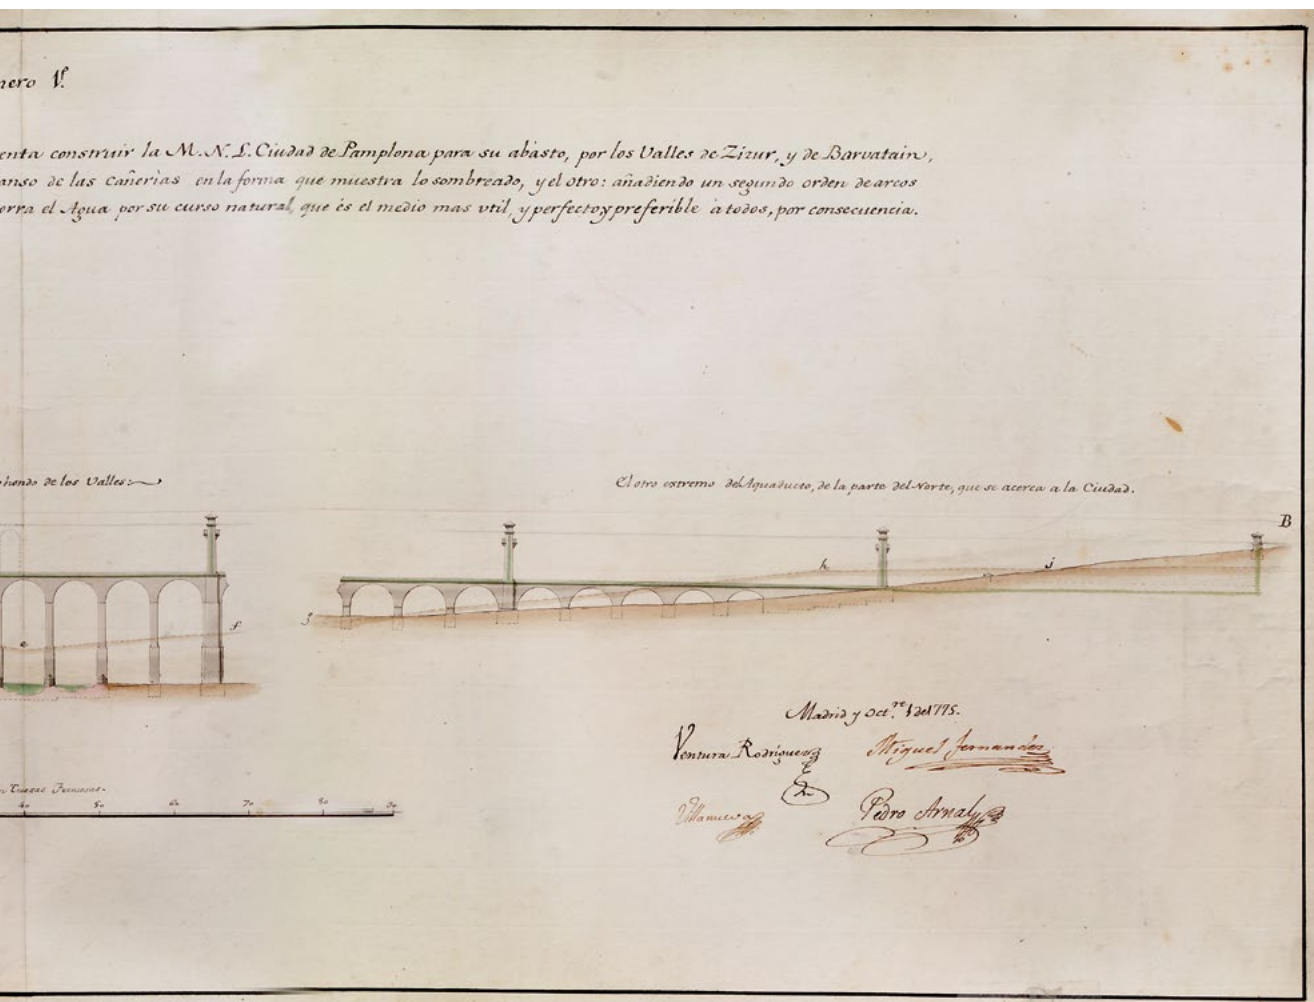 nero V.
enta construir la M. N. L. Ciudad de Pamplona para su abasto, por los Valles de Zizur, y de Barvatain,
anso de las Cañerias en la forma que muestra lo sombreado, y el otro: añadiendo un segundo orden de arcos
orra el Agua por su curso natural, que és el medio mas vtil, y perfecto y preferible a todos, por consecuencia.
hondo de los Valles:
El otro extremo del Aquaducto, de la parte del Norte, que se acerca a la Ciudad.
B
h
j
g
f
e
Madrid y Oct.re 1 de 1775.
Ventura Rodriguez
Miguel fernandez
Villanueva
Pedro Arnal
Tuesas Francesas.
40 50 60 70 80 90